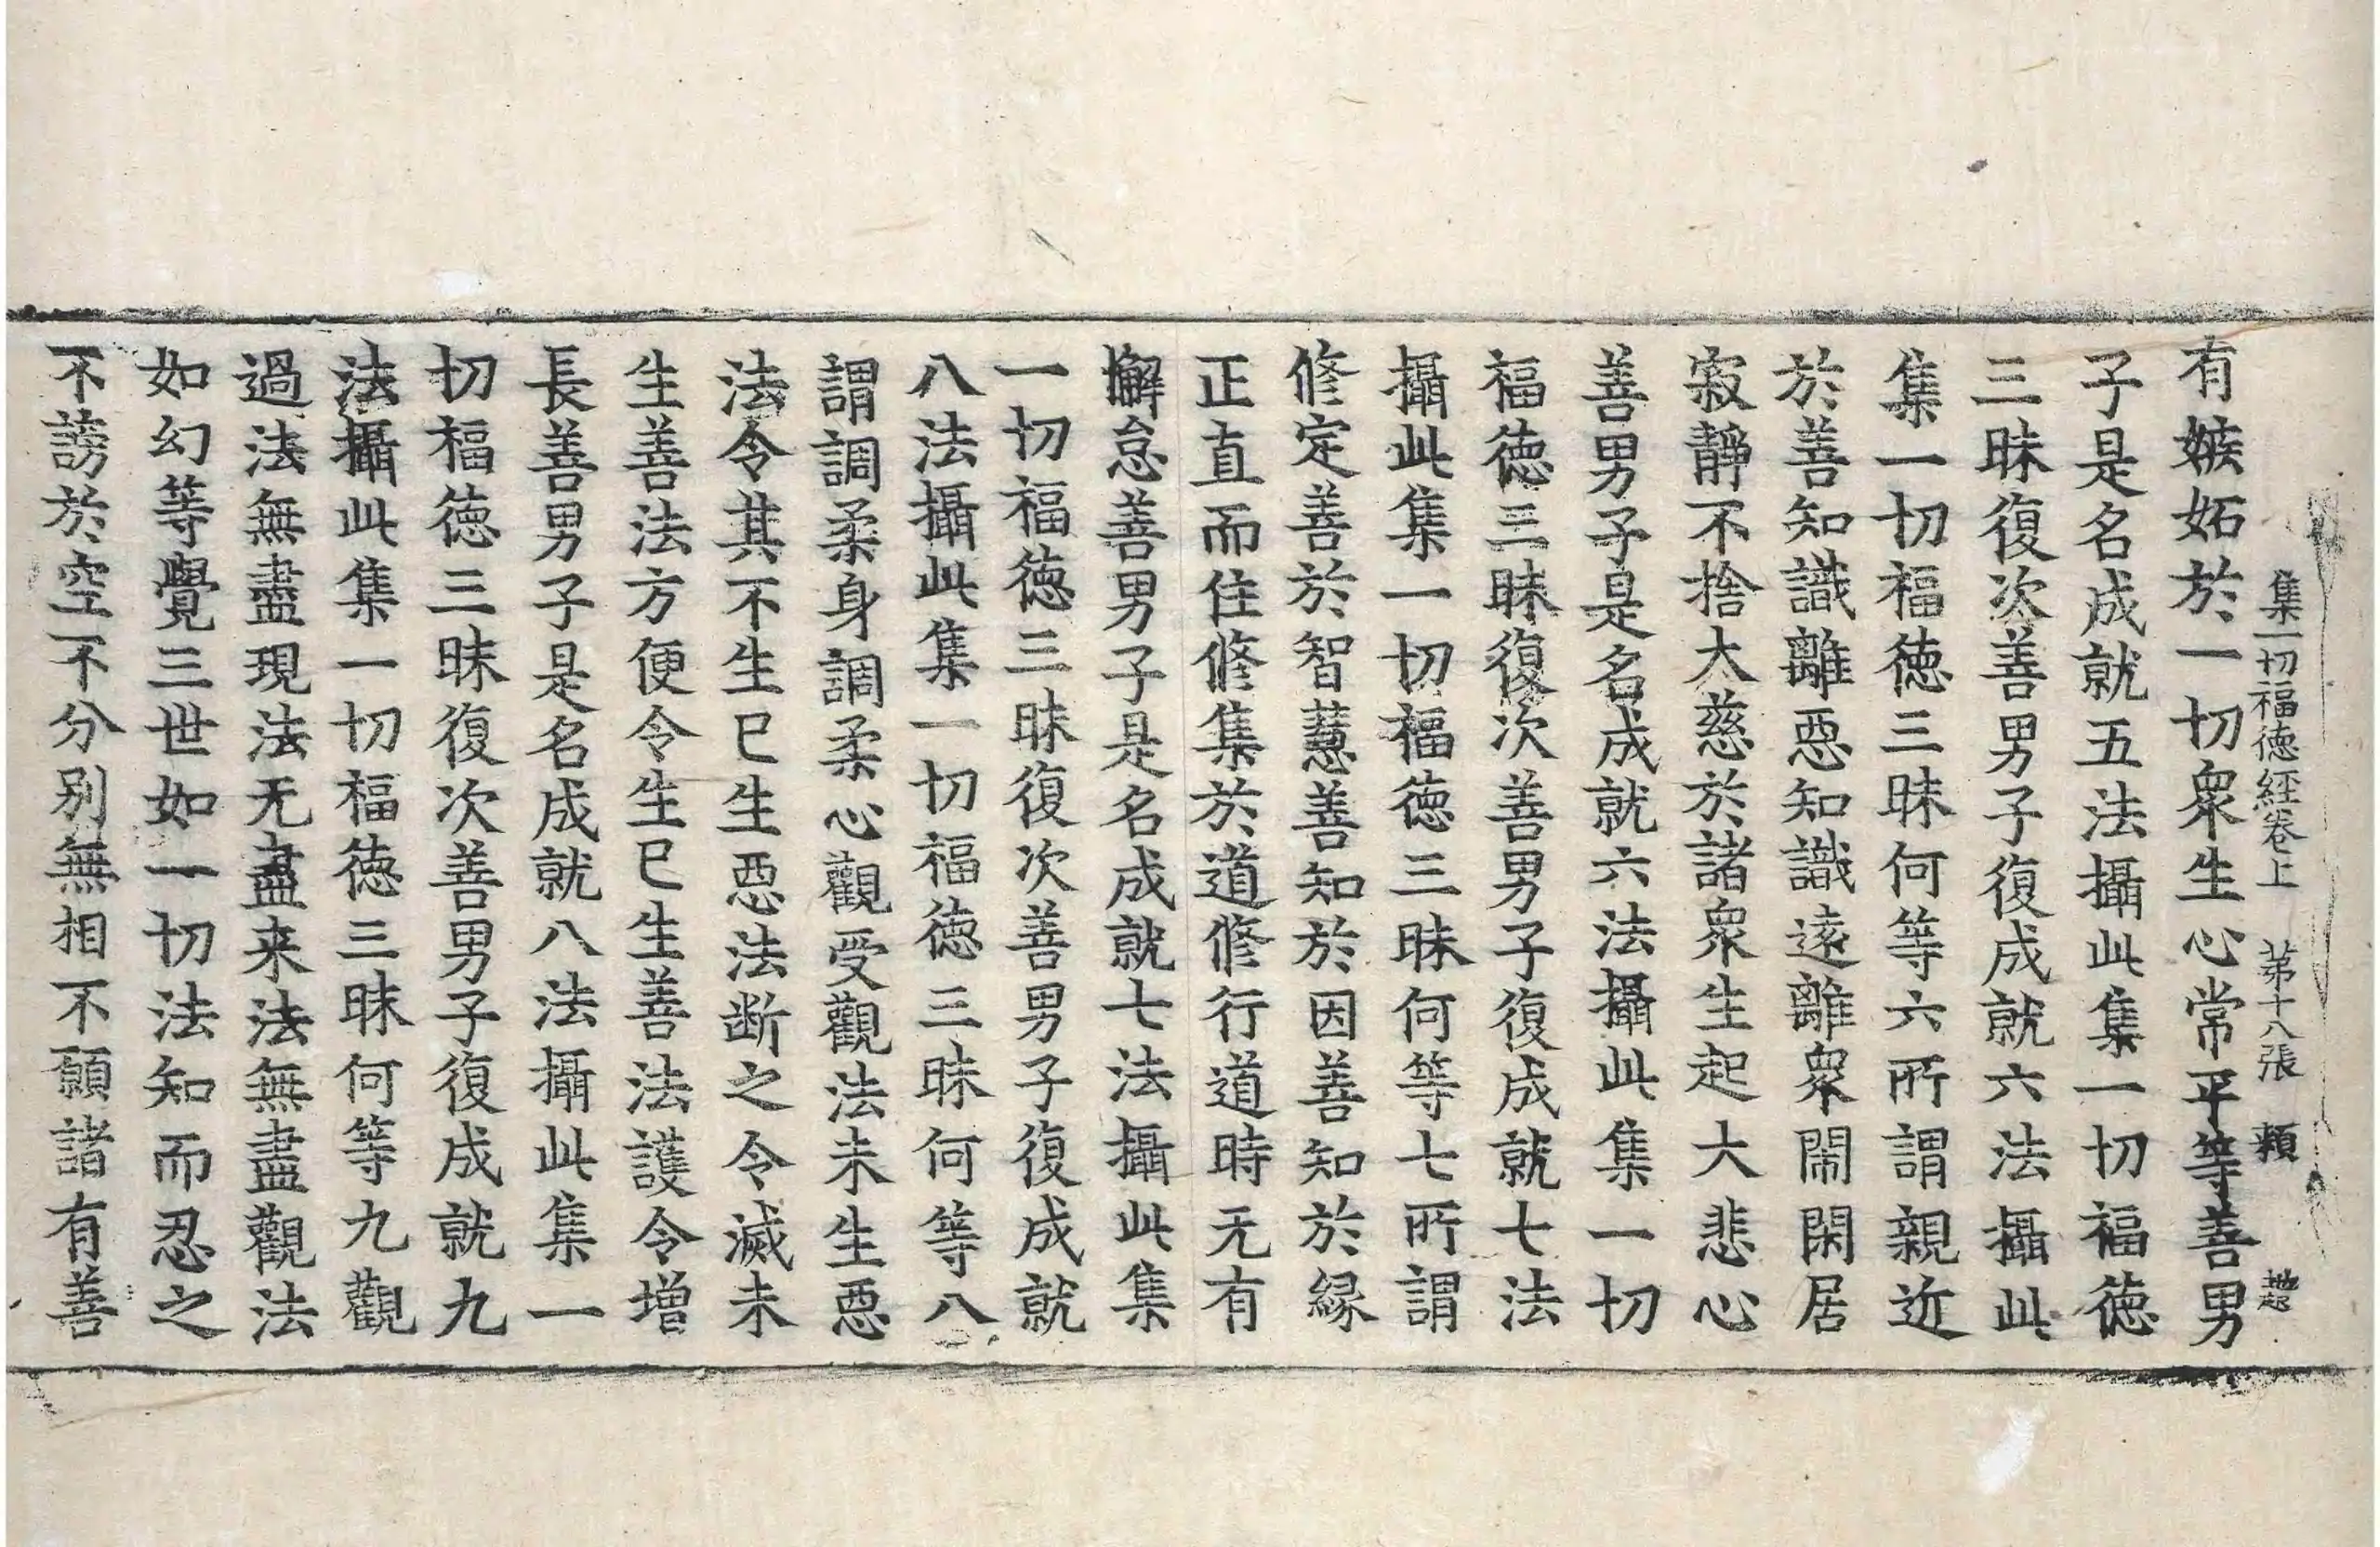 集一切福德経卷上 苐十八張 頪 趂
有嫉妬於一切衆生心常平等善男
子是名成就五法攝此集一切福徳
三昧復次善男子復成就六法攝此
集一切福徳三昧何等六所謂親近
於善知識離惡知識遠離衆閙閑居
寂靜不捨大慈於諸衆生起大悲心
善男子是名成就六法攝此集一切
福徳三昧復次善男子復成就七法
攝此集一切福徳三昧何等七所謂
修定善於智慧善知於因善知於縁
正直而住修集於道修行道時无有
懈怠善男子是名成就七法攝此集
一切福徳三昧復次善男子復成就
八法攝此集一切福徳三昧何等八
謂調柔身調柔心觀受觀法未生惡
法令其不生已生惡法断之令滅未
生善法方便令生已生善法護令增
長善男子是名成就八法攝此集一
切福徳三昧復次善男子復成就九
法攝此集一切福徳三昧何等九觀
過法無盡現法无盡来法無盡觀法
如幻等覺三世如一切法知而忍之
不謗於空不分别無相不願諸有善